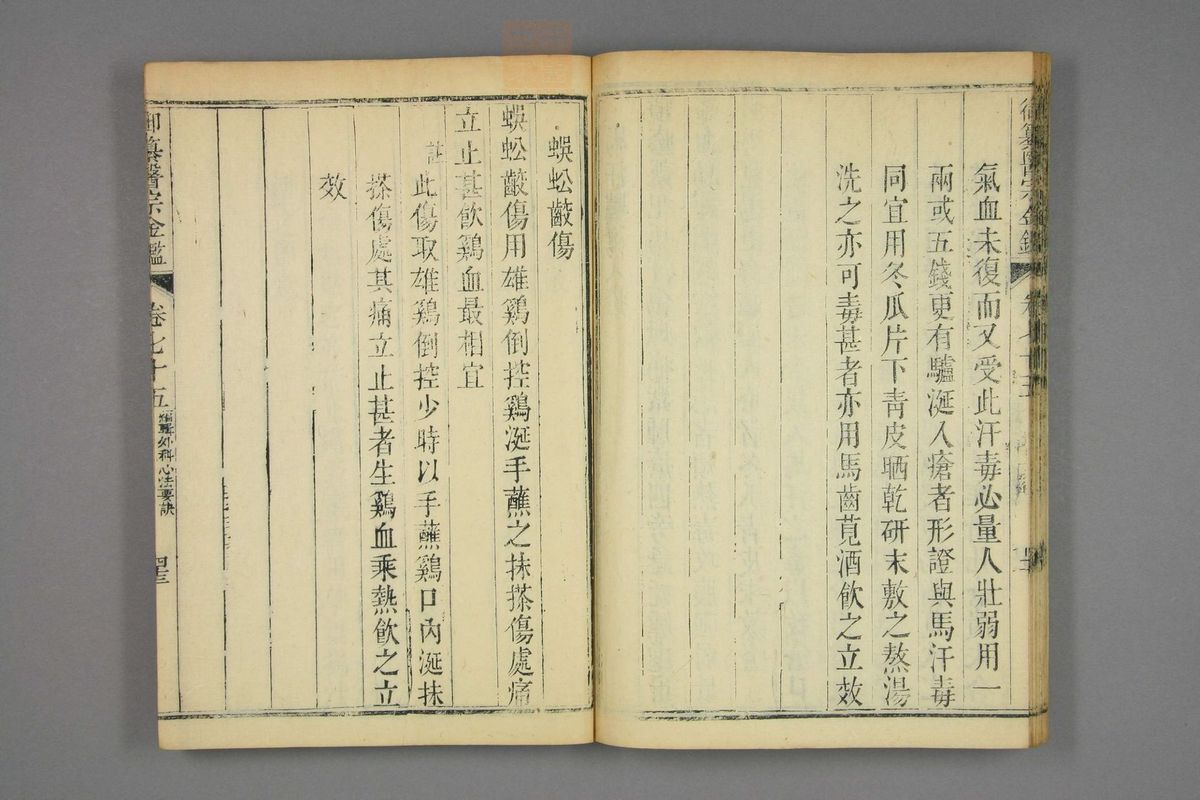 氣血未復而又受此汗毒必量人壯弱用一
兩或五錢更有驢涎入瘡者形證與馬汗毒
同宜用冬瓜片下靑皮晒乾硏末敷之熬湯
洗之亦可毒甚者亦用馬齒莧酒飮之立效
蜈蚣齩傷
蜈蚣齩傷用雄鷄倒控鷄涎手蘸之抹搽傷處痛
立止甚飮鷄血最相宜
註此傷取雄鷄倒控少時以手蘸鷄口內涎抹
搽傷處其痛立止甚者生鷄血乘熱飮之立
效
御纂醫宗金鑑
卷七十五
編輯外科心法要訣
四三